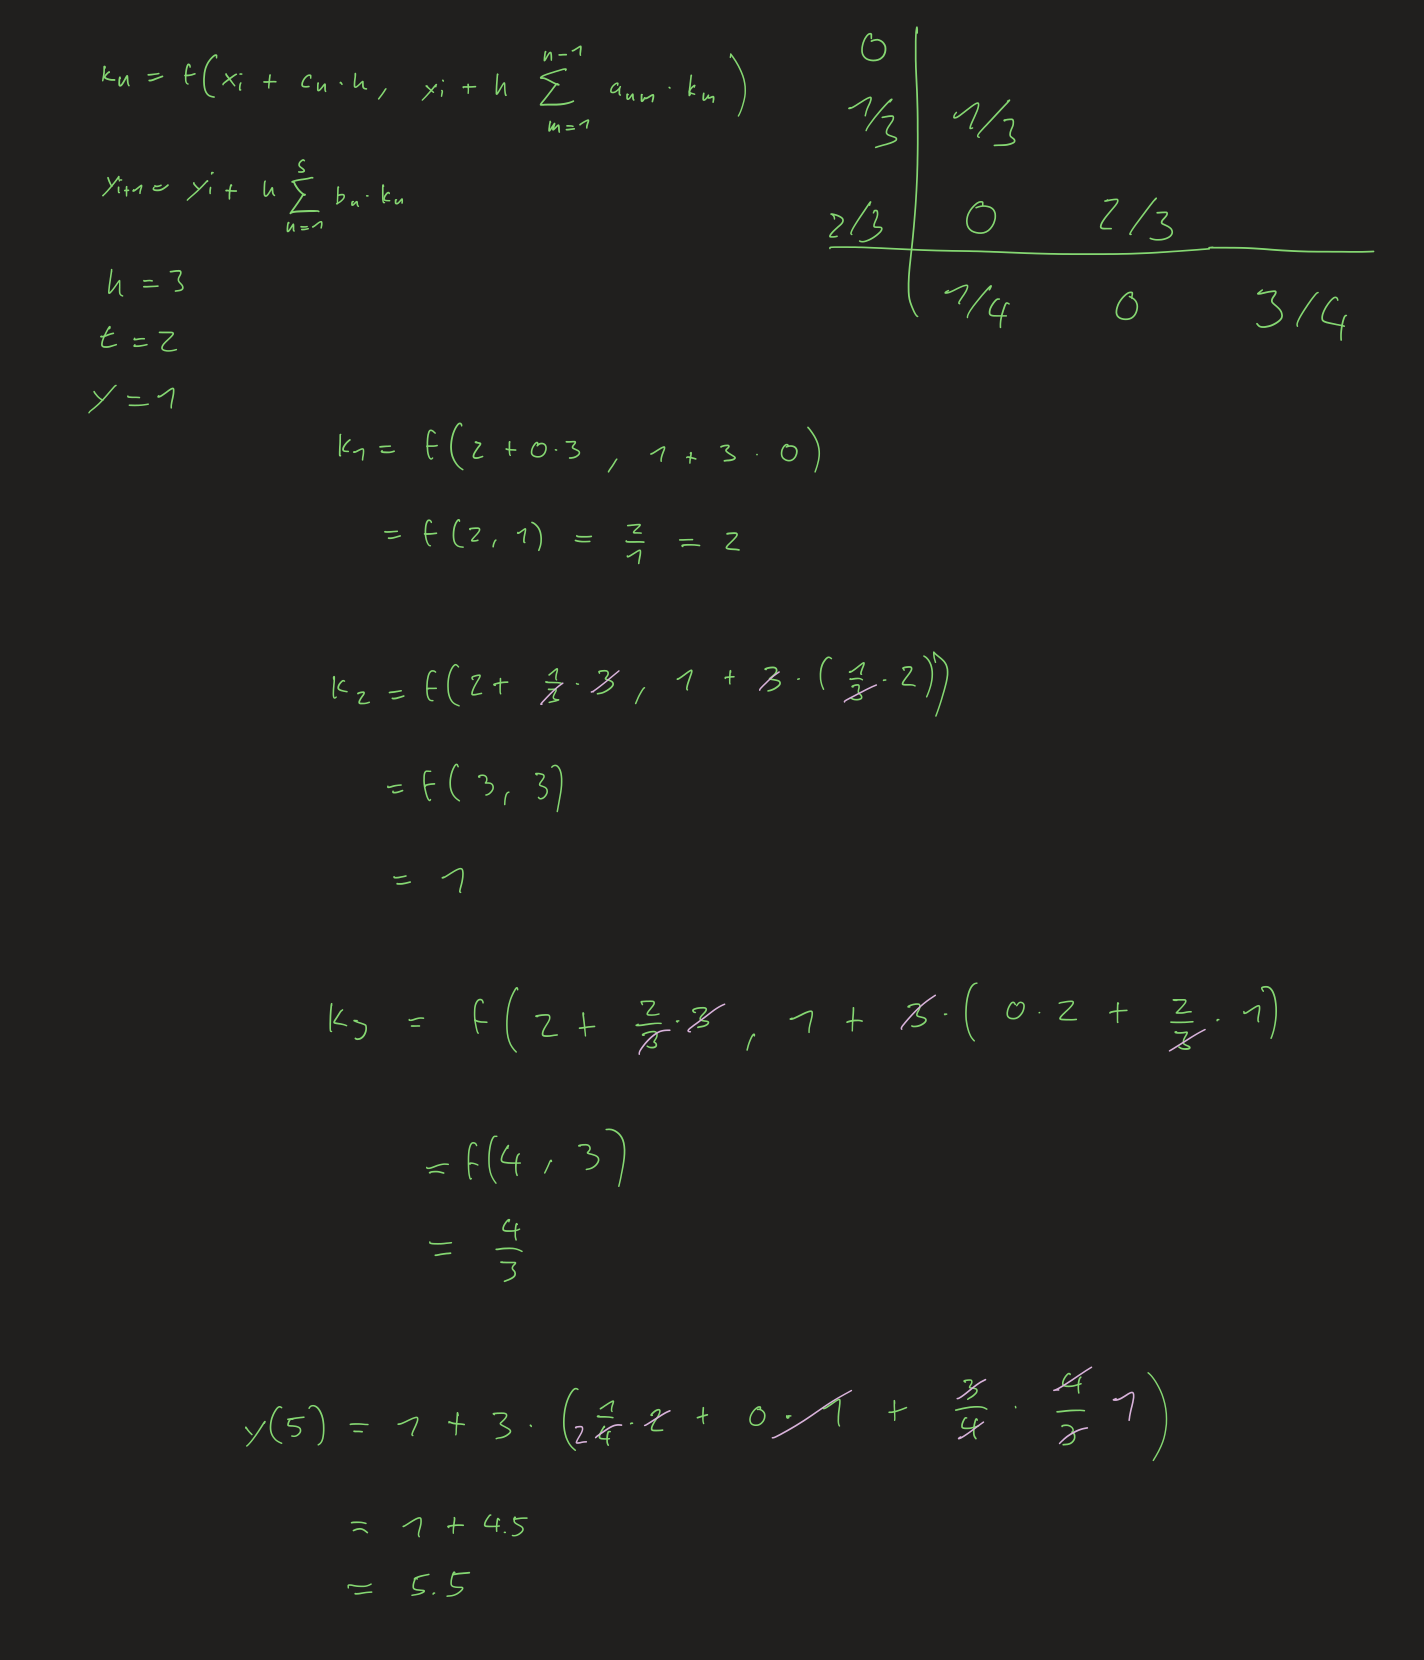 kₙ = f(xᵢ + cₙ · h, xᵢ + h ∑_{m=1}^{n-1} aₙₘ · kₘ)
yᵢ₊₁ = yᵢ + h ∑_{n=1}^{s} bₙ · kₙ
h = 3
t = 2
y = 1
0 |
1/3 | 1/3
2/3 | 0 2/3
| 1/4 0 3/4
k₁ = f(2 + 0·3, 1 + 3 · 0)
= f(2, 1) = 2/1 = 2
k₂ = f(2 + 1/3 · 3, 1 + 3 · (1/3 · 2))
= f(3, 3)
= 1
k₃ = f(2 + 2/3 · 3, 1 + 3 · (0 · 2 + 2/3 · 1)
= f(4, 3)
= 4/3
y(5) = 1 + 3 · (2 1/4 · 2 + 0 · 1 + 3/4 · 4/3 1)
= 1 + 4.5
= 5.5